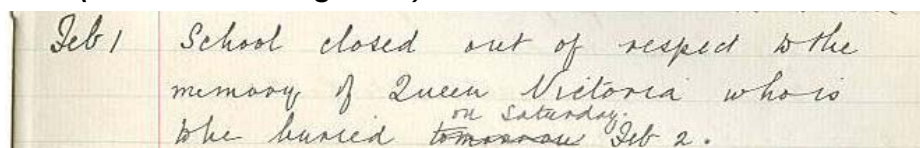 Feb 1 School closed out of respect to the
memory of Queen Victoria who is
to be buried tomorrow on Saturday. Feb 2.